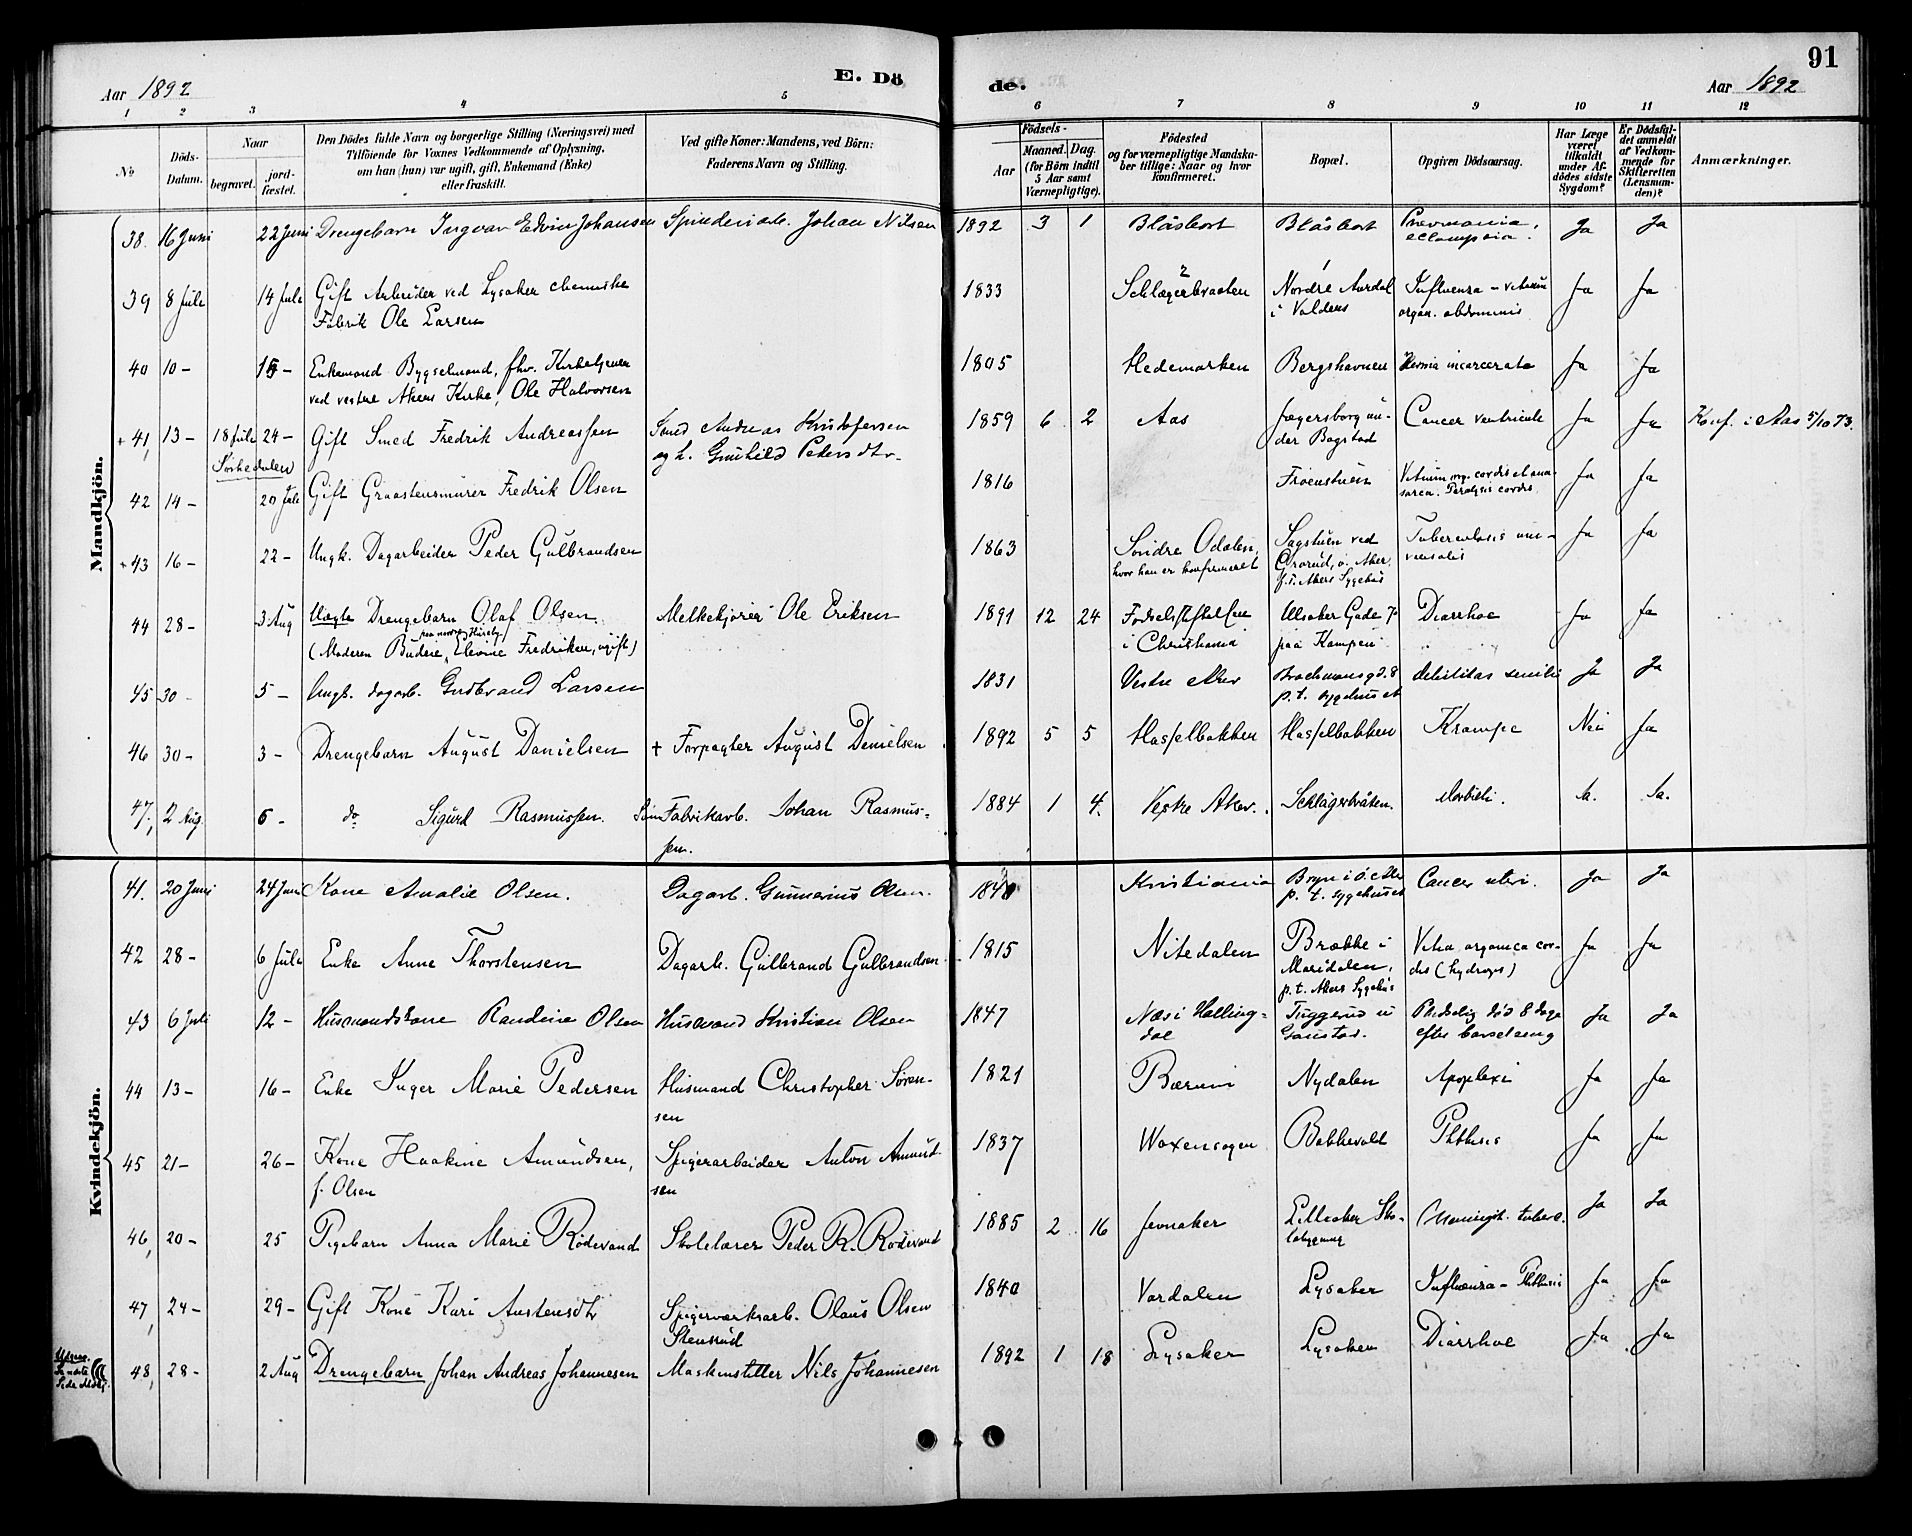 Aar 1892
E. Dö
de.
91
Aar 1892
1 2 3 4 5 6 7 8 9 10 11 12
No
Döds-Datum.
Naar
begravet.
jord-fæstet.
Den Dödes fulde Navn og borgerlige Stilling (Næringsvei) med
Tilföiende for Voxnes Vedkommende af Oplysning,
om han (hun) var ugift, gift, Enkemand (Enke)
eller fraskilt.
Ved gifte Koner: Mandens, ved Börn:
Faderens Navn og Stilling.
Födsels-
Aar
Maaned. Dag.
(for Börn indtil
5 Aar samt
Værnepligtige).
Födested
og for værnepligtige Mandska-
ber tillige: Naar og hvor
konfirmeret.
Bopæl.
Opgiven Dödsaarsag.
Har Læge
været
tilkaldt
under Af-
dödes sidste
Sygdom?
Er Dödsfal-
det anmeldt
af Vedkom-
mende for
Skifteretten
(Lensman-
den)?
Anmærkninger.
Mandkjön.
38. 16 Juni 22 Juni Drengebarn Ingvar Edvin Johansen Spinderiarb. Johan Nilsen 1892 3 1 Blåsbort Blåsbort Pnevmonia, eclampsia. Ja Ja
39 8 Juli 14 Juli Gift Arbeider ved Lysaker chemiske
Fabrik Ole Larsen 1833 Schlægerbraaten Nordre Aurdal
i Valders Influenza – vitium
organ. abdominis Ja Ja
40 10 – 15 – Enkemand Bygselmand, fhv. Kirketjener
ved vestre Akers Kirke, Ole Halvorsen 1805 Hedemarken Bergshavnen Hernia incarcerata Ja Ja
+ 41, 13 – 18 Juli 24 – Gift Smed Fredrik Andreassen Smed Andreas Kristofersen
og h. Gunhild Pedersdtr. 1859 6 2 Aas Jægersborg un-
der Bogstad Cancer ventriculi Ja Ja Konf. i Aas 5/10 73.
Sørkedalen
42 14 – 20 Juli Gift Graastensmurer Fredrik Olsen 1816 Frøenstuen Vitium org. cordis et ana-
sarca. Paralysis cordis Ja Ja
+ 43 16 – 22 – Ungk. Dagarbeider Peder Gulbrandsen 1863 Søndre Odalen,
hvor han er konfirmeret Sagstuen ved
Grorud, ø. Aker,
p. t. Akers Sygehus Tuberculosis uni-
versalis Ja Ja
44 28 – 3 Aug Uægte Drengebarn Olaf Olsen Melkekjører Ole Eriksen 1891 12 24 Fødselsstiftelsen
i Christiania Ulsaker Gade 7
paa Kampen Diarrhoe Ja Ja
(Moderen Budeie Elevine Fredriksen, ugift)
45 30 – 5 – Ungk. dagarb. Gudbrand Larsen 1831 Vestre Aker Brochmansgd. 8
p. t. sygehuset debilitas senilis Ja Ja
46 30 – 3 – Drengebarn August Danielsen + Forpagter August Danielsen 1892 5 5 Hasselbakken Hasselbakken Krampe Nei Ja
47, 2 Aug. 6 – do Sigurd Rasmussen. Søn Fabrikarb. Johan Rasmus-
sen. 1884 1 4. Vestre Aker. Schlägerbråten. Morbilli. Ja. Ja.
Kvindekjön.
41. 20 Juni 24 Juni Kone Amalie Olsen. Dagarb. Gunnerius Olsen. 1840 Kristiania Bryn i ø. Aker
p. t. sygehuset Cancer uteri. Ja Ja
42 28 – 6 Juli Enke Anne Thorstensen Dagarb. Gulbrand Gulbrandsen 1815 Nitedalen Brække i
Maridalen,
p. t. Akers Sygehus Vitia organica cor-
dis (hydrops) Ja Ja
43 6 Juli 12 – Husmandskone Randine Olsen Husmand Kristian Olsen 1847 Næs i Halling-
dal Tuggerud u
Gaustad. Pludselig død 8 dage
efter barselseng Ja Ja
44 13 – 16 – Enke Inger Marie Pedersen Husmand Christopher Søren-
sen 1821 Bærum Nydalen Apoplexi Ja Ja
45 21 – 26 – Kone Haakine Amundsen,
f. Olsen Spigerarbeider Anton Amund-
sen 1837 Woxensogen Bakkevold Phthisis Ja Ja
46, 20 – 25 Pigebarn Anna Marie Rødevand Skolelærer Peder R. Rødevand 1885 2 16 Jevnaker Lilleaker Sko-
lebygning Meningit. tuberc. Ja Ja
47, 24 – 29 – Gift Kone Kari Austensdtr Spigerværksarb. Olaus Olsen
Stensrud 1840 Vardalen Lysaker Influenza – Phthisis Ja Ja
48, 28 – 2 Aug Drengebarn Johan Andreas Johannesen Maskinstiller Nils Johannesen 1892 1 18 Lysaker Lysaker Diarrhoe Ja Ja